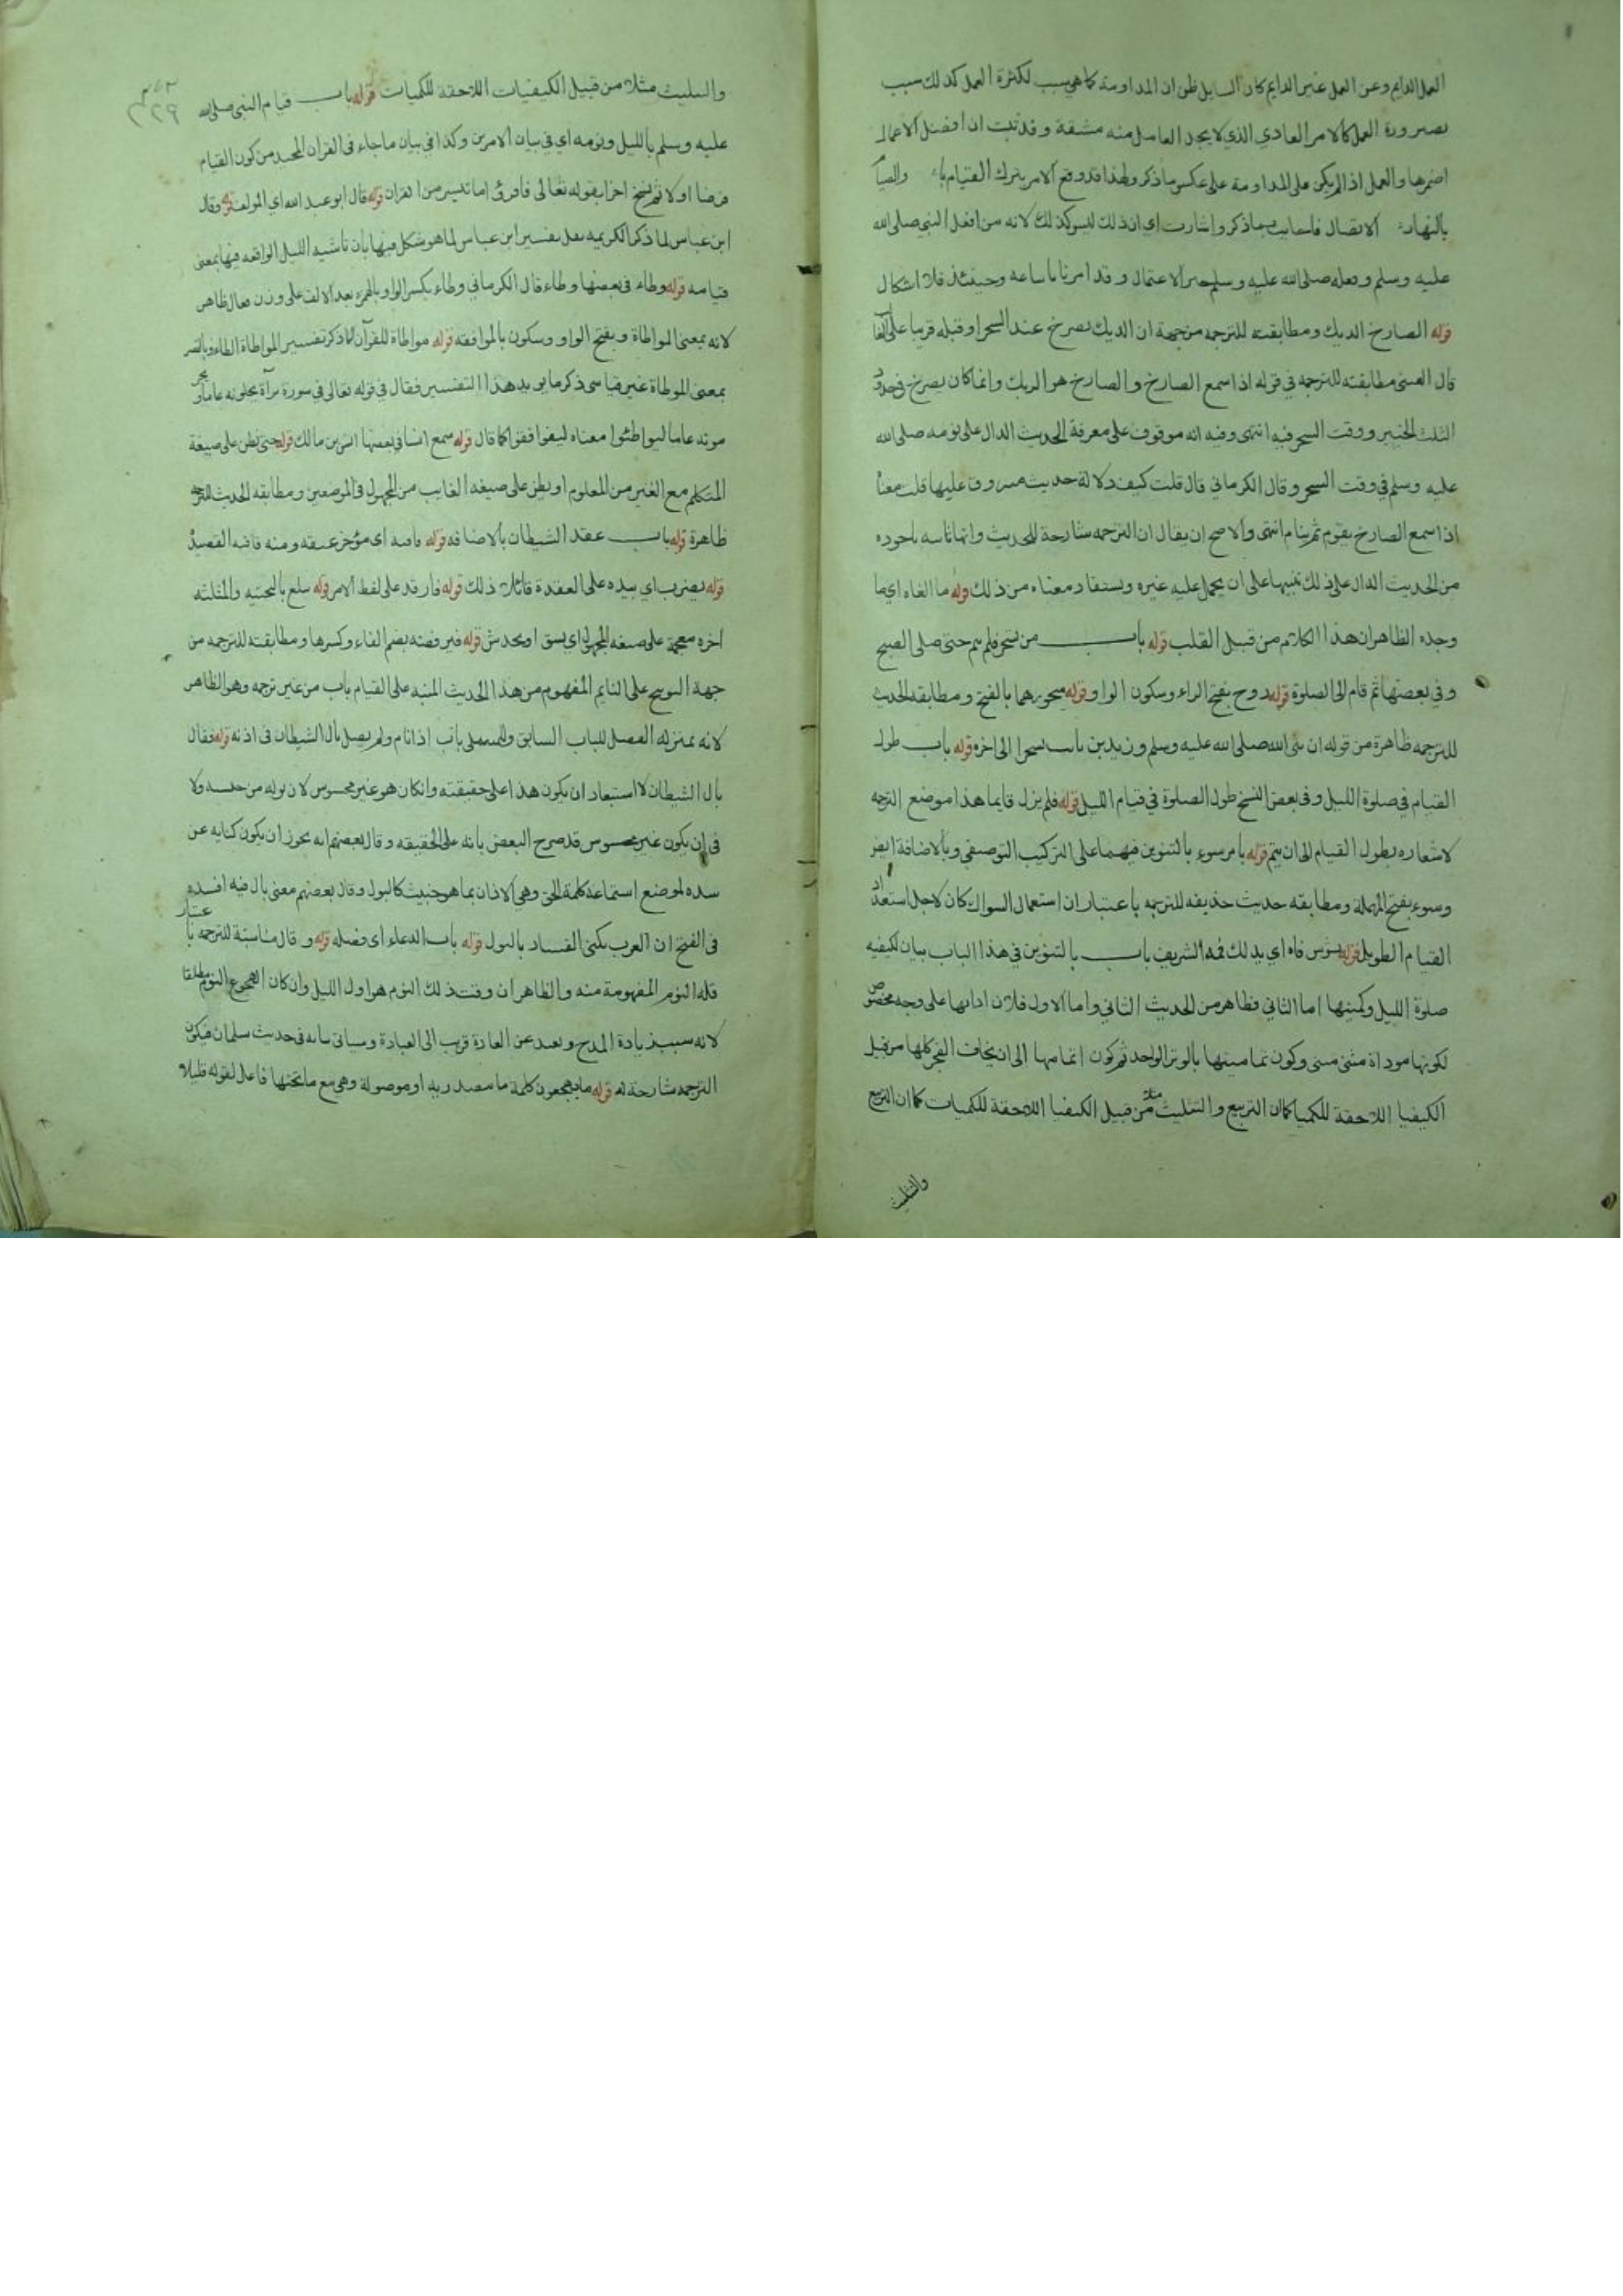 العمل الدايم وعن العمل غير الدايم كان السايل ظن ان المداومة كما هي سبب لكثرة العمل كذلك سبب
لصيرورة العمل كالامر العادي الذي لا يجد العامل منه مشقة وقد ثبت ان افضل الاعمال
احمزها والعمل اذا لم يكن على المداومة على عكس ما ذكر ولهذا قد وقع الامر بترك القيام والصيام
بالنهار الاتصال فاجابت بما ذكر واشارت اي ان ذلك ليس كذلك لانه من افعل النبي صلى الله
عليه وسلم وفعله صلى الله عليه وسلم خير الاعمال وقد امرنا باتباعه وحينئذ فلا اشكال
قوله الصارخ الديك ومطابقته للترجمة من جهة ان الديك يصرخ عند السحر او قبله قريبا على
قال العيني مطابقته للترجمة في قوله اذا سمع الصارخ والصارخ هو الديك وانما كان يصرخ في حدود
الثلث الاخير ووقت السحر فيه انتهى وفيه انه موقوف على معرفة الحديث الدال على نومه صلى الله
عليه وسلم في وقت السحر وقال الكرماني قال قلت كيف دلالة حديث مسروق عليها قلت معناه
اذا سمع الصارخ يقوم ثم ينام انتهى والاصح ان يقال ان الترجمة شارحة للحديث وانها
من الحديث الدال على ذلك تنبيها على ان يحمل عليه غيره ويستفاد معناه من ذلك قوله ما الفاه اي ما
وجده الظاهر ان هذا الكلام من قبيل القلب قوله باب من تسحر فلم ينم حتى صلى الصبح
وفي بعضها ثم قام الى الصلوة قوله روح بفتح الراء وسكون الواو قوله سحورهما بالفتح ومطابقة الحديث
للترجمة ظاهرة من قوله ان نبي الله صلى الله عليه وسلم وزيد بن ثابت تسحرا الى اخره قوله باب طول
القيام في صلوة الليل وفي بعض النسخ طول الصلوة في قيام الليل قوله فلم يزل قايما هذا موضع الترجمة
لاشعاره بطول القيام الى ان يتم قوله بامر سوء بالتنوين فيهما على التركيب التوصيفي وبالاضافة ايضا
وسوء بفتح المهملة ومطابقة حديث حذيفة للترجمة باعتبار ان استعمال السواك كان لاجل استعداد
القيام الطويل قوله يشوص فاه اي يدلك فمه الشريف باب بالتنوين في هذا الباب بيان لكيفية
صلوة الليل وكميتها اما الثاني فظاهر من الحديث الثاني واما الاول فلان ادايها على وجه مخصوص
لكونها موداة مثنى مثنى وكون تماميتها بالوتر الواحد ثم كون اتمامها الى ان يخاف الفجر كلها من قبيل
الكيفيا اللاحقة للكميا كما ان التربيع والتثليث مثلا من قبيل الكيفيا اللاحقة للكميات كما ان التربيع
والتثليث
والتثليث مثلا من قبيل الكيفيات اللاحقة للكميات قوله باب قيام النبي صلى الله
عليه وسلم بالليل ونومه اي في بيان الامرين وكذا في بيان ما جاء في القران المجيد من كون القيام
فرضا اولا ثم نسخ اخرا بقوله تعالى فاقرؤا ما تيسر من القران قوله قال ابو عبد الله اي المولف قوله وقال
ابن عباس لما ذكر الكريمة نقل تفسير ابن عباس لما هو مشكل فيها بان ناشية الليل الواقعة فيها بمعنى
قيامه قوله وطاء في بعضها وطاء قال الكرماني وطاء بكسر الواو بالهمزة بعد الالف على وزن فعال ظاهر
لانه بمعنى المواطاة وبفتح الواو وسكون بالموافقة قوله مواطاة للقرآن لما ذكر تفسير المواطاة
بمعنى الموطاة غير قياسي ذكر ما يويد هذا التفسير فقال في قوله تعالى في سورة برآة يحلونه عاما ويحر
مونه عاما ليواطئوا معناه ليوافقوا كما قال قوله سمع انسا في بعضها انس بن مالك قوله حتى نظن على صيغة
المتكلم مع الغير من المعلوم او يظن على صيغة الغايب من المجهول في الموضعين ومطابقة الحديث للترجمة
ظاهرة قوله باب عقد الشيطان بالاضافة قوله قافية اي مؤخر عنقه ومنه قافية القصيدة
قوله يضرب اي بيده على العقدة قائلا ذلك قوله فارقد على لفظ الامر قوله يثلغ بالتحتية والمثلثة
اخره معجمة على صيغة المجهول اي يشق او يخدش قوله فيرفضه بضم الفاء وكسرها ومطابقته للترجمة من
جهة التوبيخ على النايم المفهوم من هذا الحديث المنبه على القيام باب من غير ترجمة وهو الظاهر
لانه بمنزلة الفصل للباب السابق وللمستملي باب اذا نام ولم يصل بال الشيطان في اذنه قوله فقال
بال الشيطان لا استبعاد ان يكون هذا على حقيقته وان كان هو غير محسوس لان بوله من جنسه ولا
في ان يكون غير محسوس قد صرح البعض بانه على الحقيقة وقال بعضهم انه يجوز ان يكون كناية عن
سده لموضع استماعه كلمة الحق وهي الاذان بما هو خبيث كالبول وقال بعضهم معنى بال فيه افسده
في الفتح ان العرب تكنى الفساد بالبول قوله باب الدعاء اي وفضله قوله وقال مناسبة للترجمة باعتبار
قلة النوم المفهومة منه والظاهر ان وقت ذلك النوم هو اول الليل وان كان الهجوع النوم مطلقا
لانه سبب زيادة المدح وبعد عن العادة قريب الى العبادة وسياتي بيانه في حديث سلمان فيكون
الترجمة شارحة له قوله ما يهجعون كلمة ما مصدرية او موصولة وهي مع ما تحتها فاعل لقوله قليلا